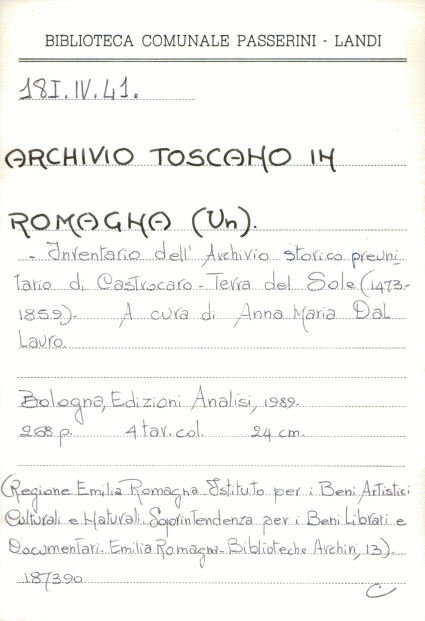 BIBLIOTECA COMUNALE PASSERINI - LANDI
18I.IV.41.
ARCHIVIO TOSCANO IN
ROMAGNA (Un).
- Inventario dell' Archivio storico preuni
tario di Castrocaro - Terra del Sole (1473-
1859). A cura di Anna Maria Dal
Lauro.
Bologna, Edizioni Analisi, 1989.
268 p. 4 tav. col. 24 cm.
(Regione Emilia Romagna. Istituto per i Beni Artistici
Culturali e Naturali. Soprintendenza per i Beni Librari e
Documentari. Emilia Romagna - Biblioteche Archivi, 13).
187390
C